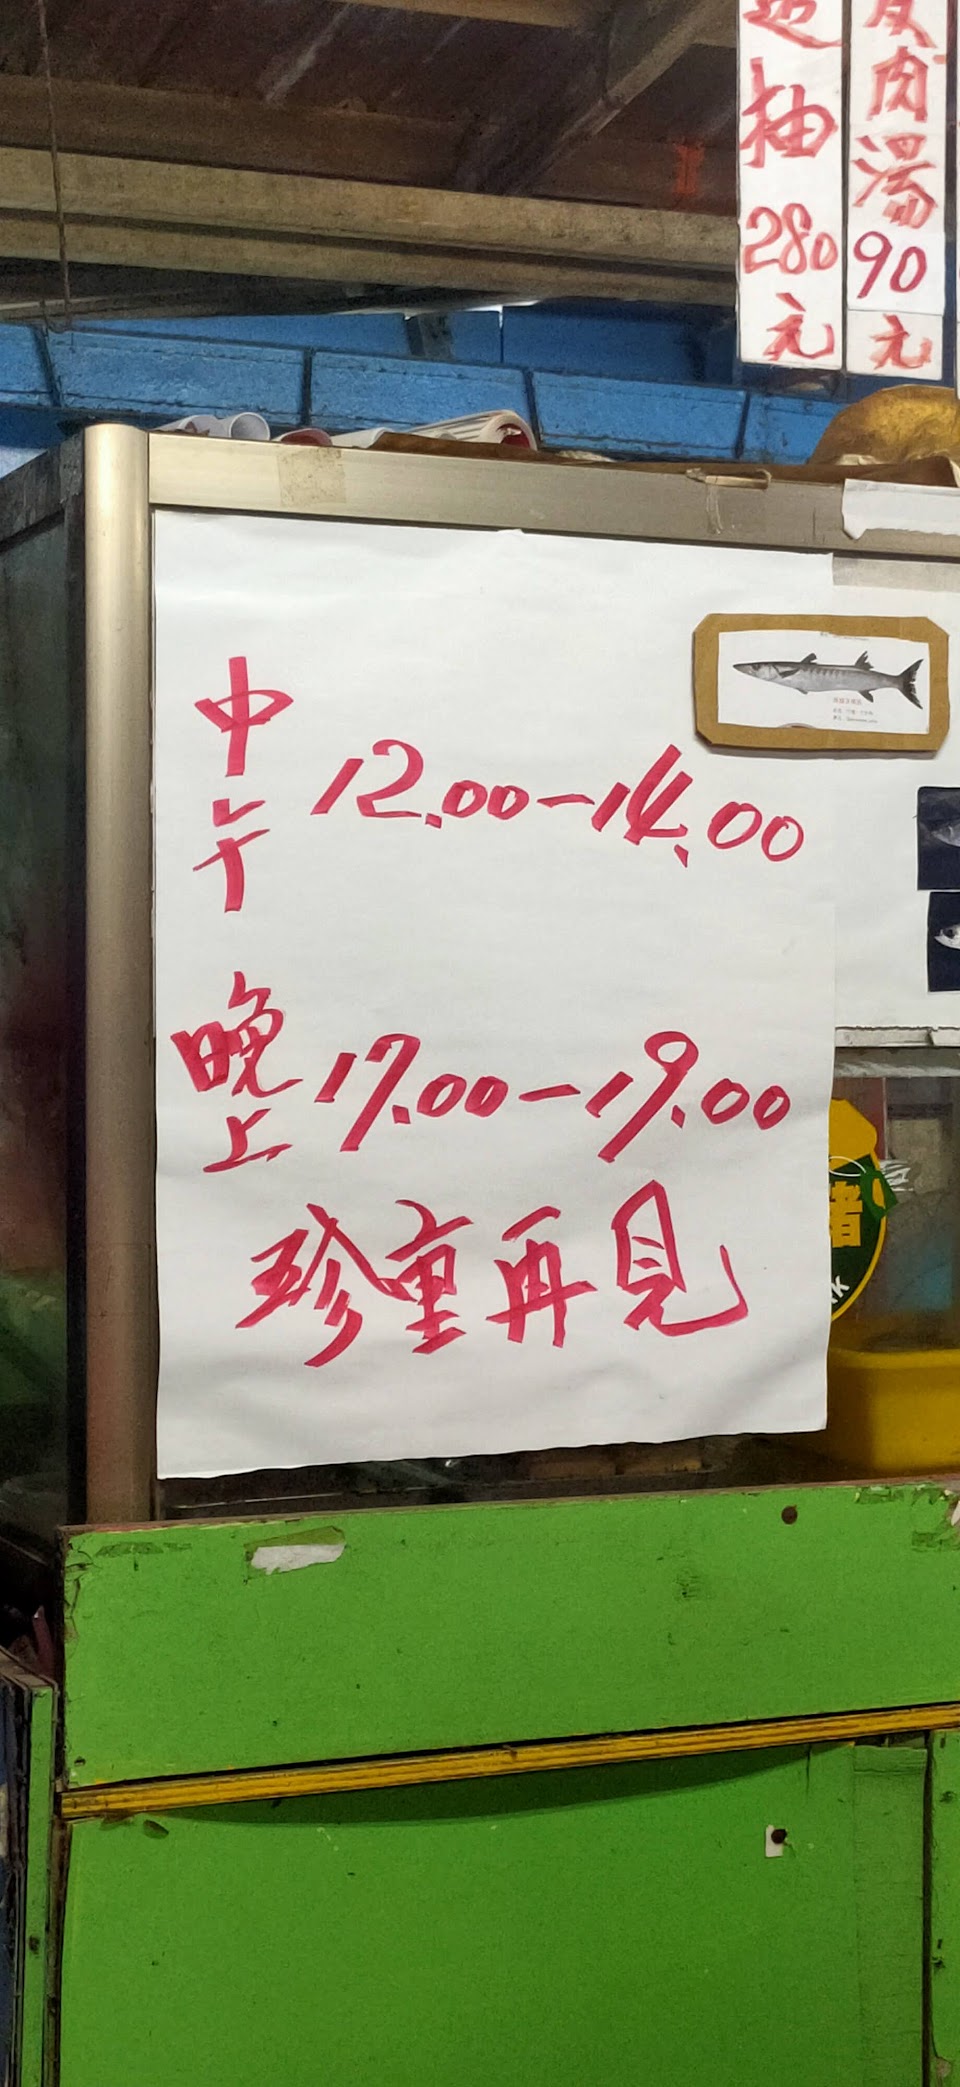 抽
280
元
肉
湯
90
元
中午 12.00-14.00
晚上 17.00-19.00
珍重再見
豬